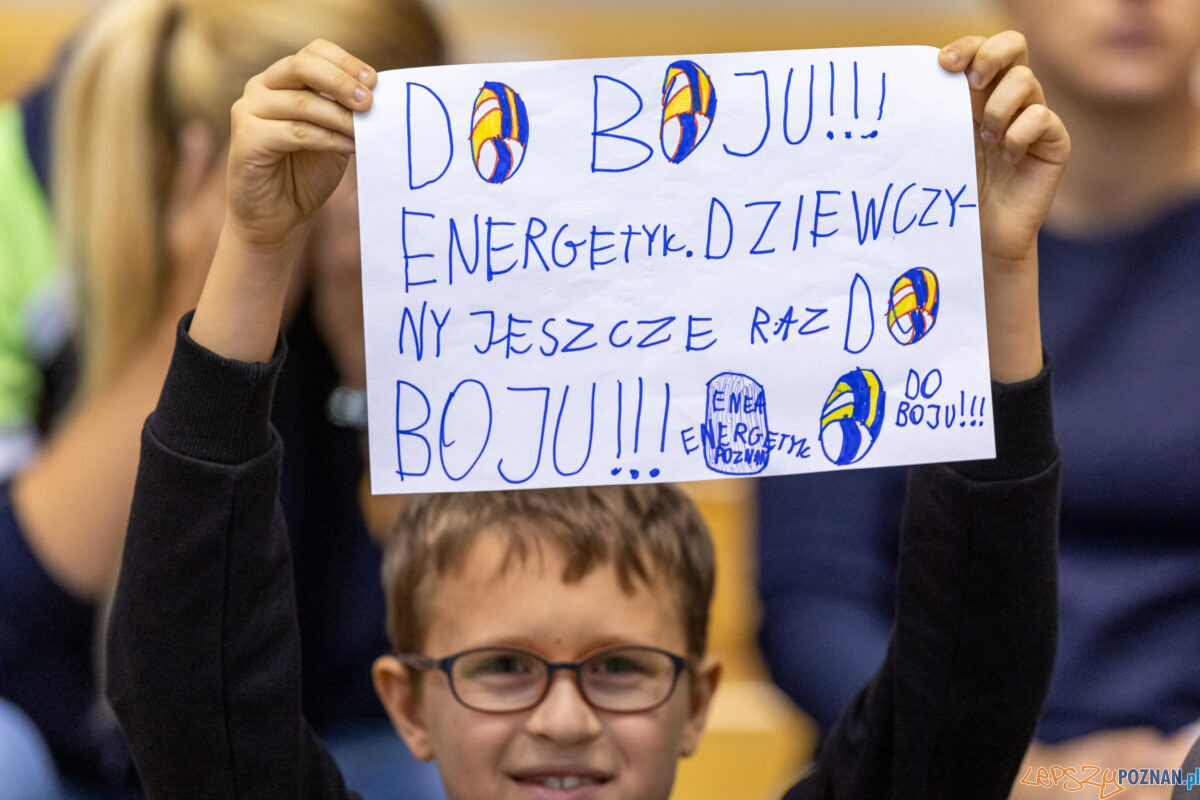 DO BOJU!!!
ENERGETYK. DZIEWCZY-
NY JESZCZE RAZ DO
BOJU!!!
ENEA
ENERGETYK
POZNAŃ
DO
BOJU!!!
LEPSZYPOZNAN.pl